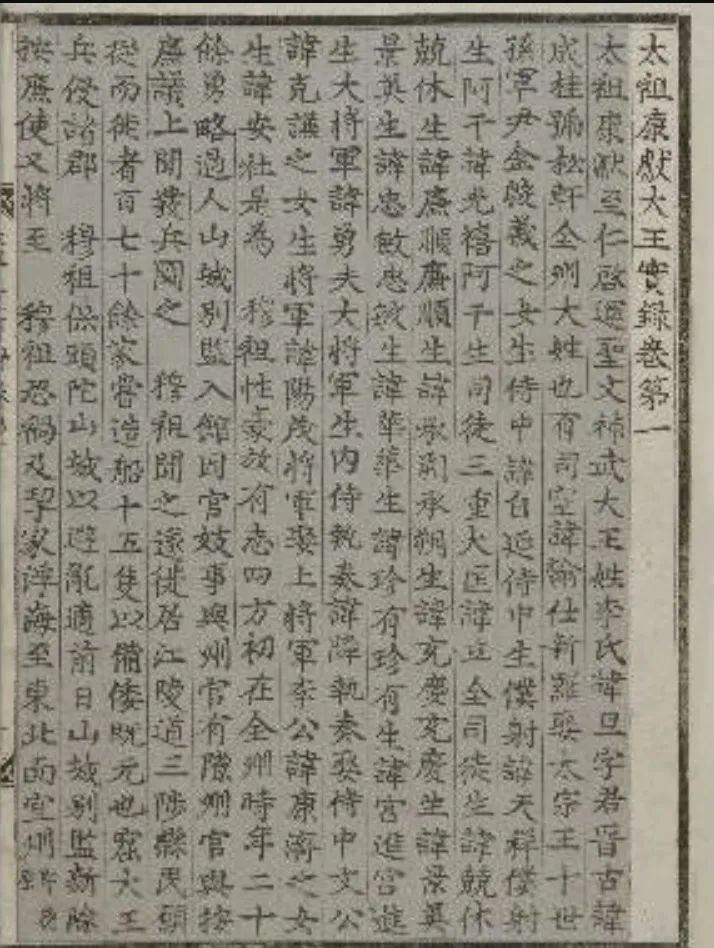 太祖康獻大王實錄卷第一
太祖康獻至仁啓運聖文神武大王姓李氏諱旦字君晋古諱
成桂號松軒全州大姓也有司空諱翰仕新羅娶太宗王十世
孫軍尹金殷義之女生侍中諱自延侍中生僕射諱天祥僕射
生阿干諱光禧阿干生司徒三重大匡諱立全司徒生諱兢休
兢休生諱廉順廉順生諱承朔承朔生諱充慶充慶生諱景英
景英生諱忠敏忠敏生諱華華生諱珍有珍有生諱宮進宮進
生大將軍諱勇夫大將軍生內侍執奏諱隣執奏娶侍中文公
諱克謙之女生將軍諱陽茂將軍娶上將軍李公諱康濟之女
生諱安社是爲 穆祖性豪放有志四方初在全州時年二十
餘勇略過人山城別監入館因官妓事與州官有隙州官與按
廉議上聞發兵圖之 穆祖聞之遂徙居江陵道三陟縣民願
從而徙者百七十餘家嘗造船十五隻以備倭旣元也窟大王
兵侵諸郡 穆祖保頭陀山城以避亂適前日山城別監新除
按廉使又將至 穆祖恐禍及挈家浮海至東北面宜州